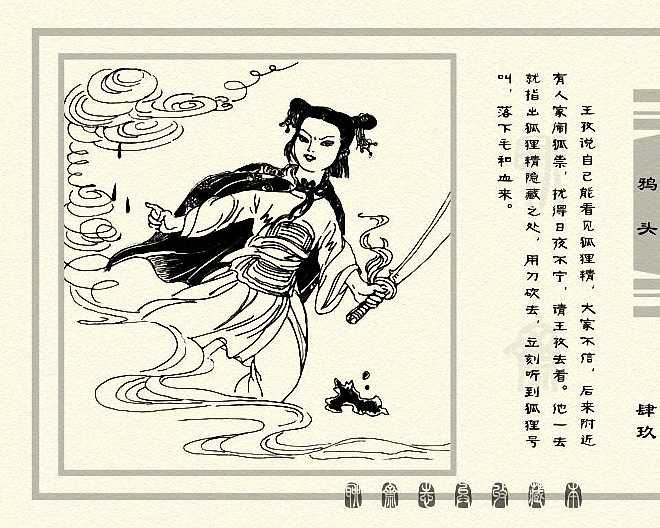 王孜说自己能看见狐狸精，大家不信，后来附近
有人家闹狐祟，扰得日夜不宁，请王孜去看。他一去
就指出狐狸精隐藏之处，用刀砍去，立刻听到狐狸号
叫，落下毛和血来。
鸦头
肆玖